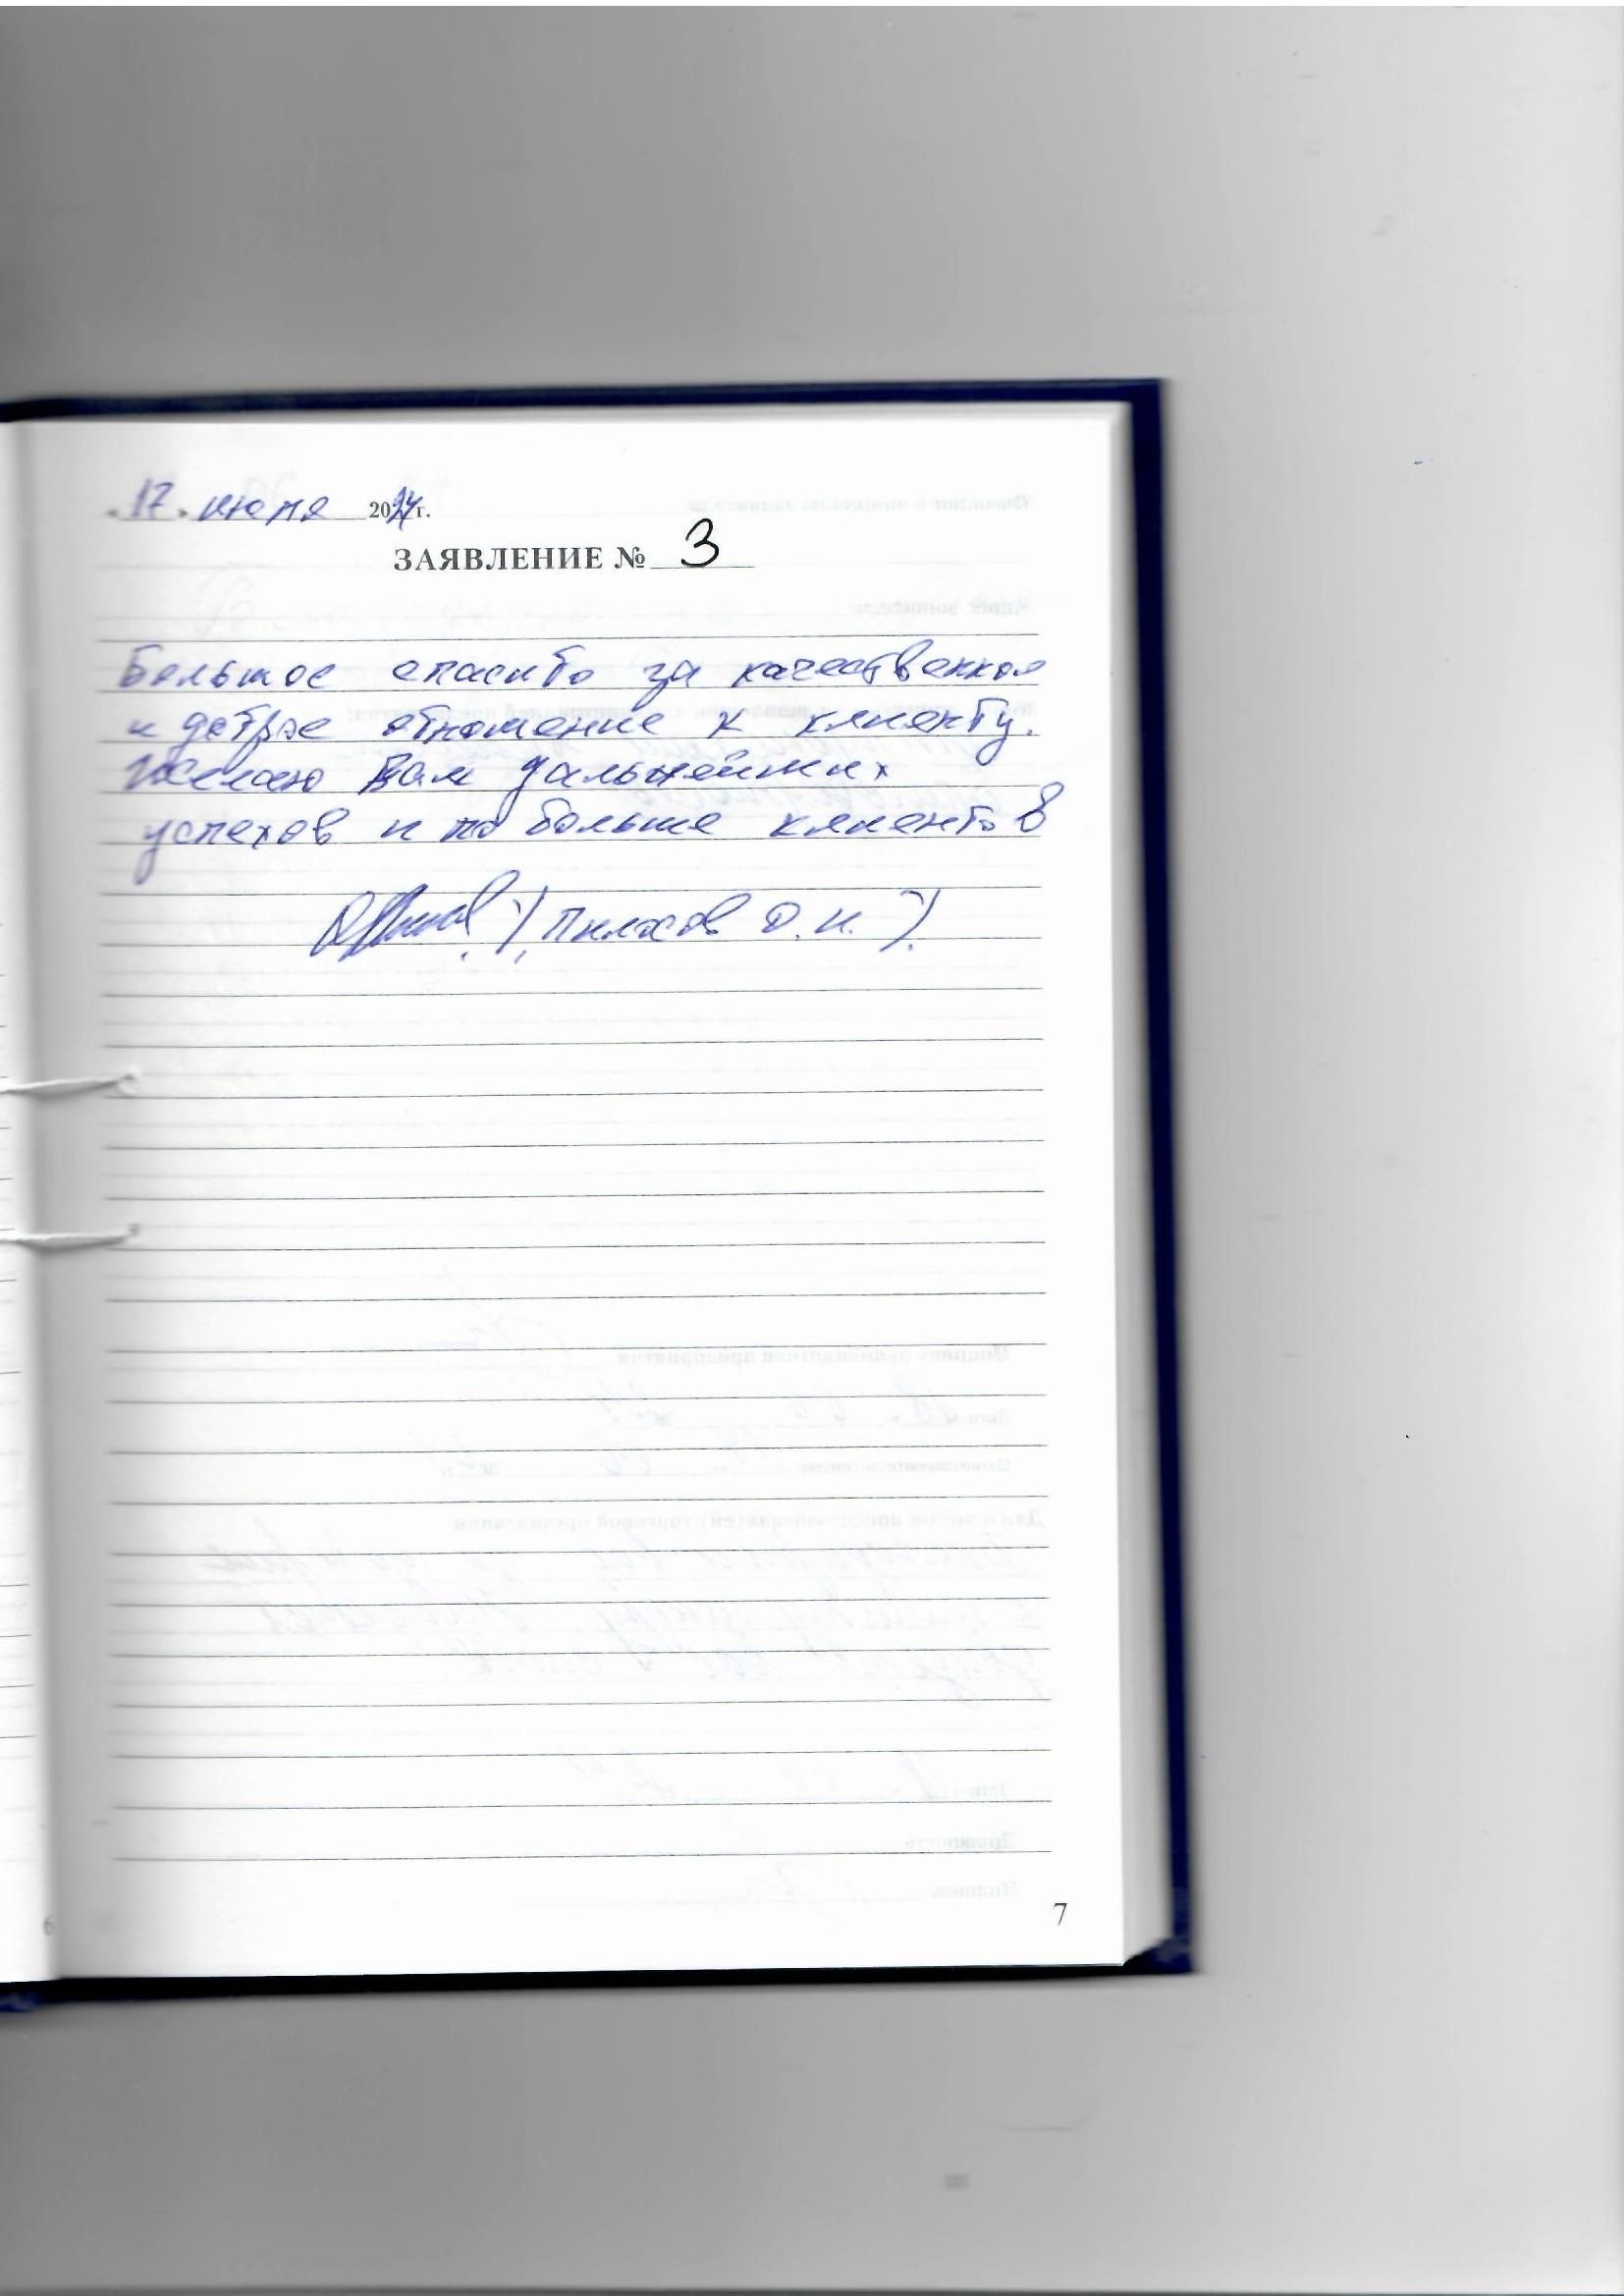 « 17 » июля 2024 г.
ЗАЯВЛЕНИЕ № 3
Большое спасибо за качественное
и доброе отношение к клиенту.
Желаю Вам дальнейших
успехов и по больше клиентов
О. И.
7